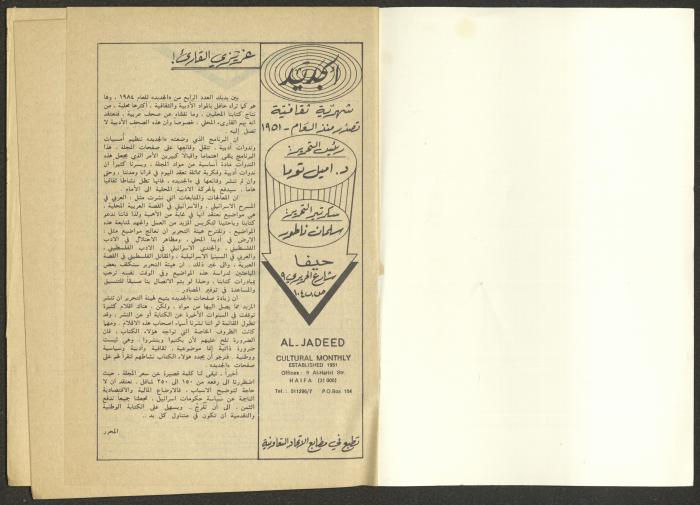 الجديد
شهرية ثقافية
تصدر منذ العام - ١٩٥١
رئيس التحرير:
د. اميل توما
سكرتير التحرير:
سلمان ناطور
حيفا
شارع الحريري ٩
ص.ب ١٠٤
AL-JADEED
CULTURAL MONTHLY
ESTABLISHED 1951
Offices: 9 Al-Hariri Str.
HAIFA (31 000)
Tel.: 511296/7 P.O.Box 104
تطبع في مطابع الاتحاد التعاونية
عزيزي القارئ!
بين يديك العدد الرابع من «الجديد» للعام ١٩٨٤ ، وها
هو كما تراه حافل بالمواد الأدبية والثقافية ، أكثرها محلية ، من
نتاج كتابنا المحليين ، وما نقلناه عن صحف عربية ، فنعتقد
انه يهم القارىء المحلي ، خصوصا وان هذه الصحف الأدبية لا
تصل إليه .
ان البرنامج الذي وضعته «الجديد» تنظيم أمسيات
وندوات أدبية ، تنقل وقائعها على صفحات المجلة ، هذا
البرنامج يلقى اهتماما واقبالا كبيرين الأمر الذي يجعل هذه
الندوات مادة أساسية من مواد المجلة ، ويسرنا كثيرا ان
ندوات أدبية وفكرية مماثلة تعقد اليوم في قرانا ومدننا ، وحتى
وان لم تنشر وقائعها في «الجديد» فانها تظل نشاطا ثقافيا
هاما ، سيدفع بالحركة الادبية المحلية الى الأمام .
ان المعالجات والمتابعات التي نشرت مثل ، العربي في
المسرح الاسرائيلي ، والاسرائيلي في القصة العربية المحلية ،
هي مواضيع نعتقد أنها في غاية من الأهمية ولذا فاننا ندعو
كتابنا وباحثينا لتكريس المزيد من العمل والجهد لمتابعة هذه
المواضيع . وتقترح هيئة التحرير ان تعالج مواضيع مثل :
الارض في أدبنا المحلي ، ومظاهر الاحتلال في الادب
الفلسطيني ، والجندي الاسرائيلي في الادب الفلسطيني ،
والعربي في السينما الاسرائيلية ، والمقاتل الفلسطيني في القصة
العبرية ، والى غير ذلك . ان هيئة التحرير ستكلف بعض
الباحثين لدراسة هذه المواضيع وفي الوقت نفسه ترحب
بمبادرات كتابنا ، وحبذا لو يتم الاتصال بنا مسبقا للتنسيق
والمساعدة في توفير المصادر .
ان زيادة صفحات «الجديد» يتيح لهيئة التحرير ان تنشر
المزيد مما يصل اليها من مواد ، ولكن . هناك اقلام كثيرة
توقفت في السنوات الأخيرة عن الكتابة أو عن النشر ، وقد
تطول القائمة لو اننا نشرنا أسماء اصحاب هذه الاقلام . ومهما
كانت الظروف الخاصة التي تواجه هؤلاء الكتاب ، فان
الضرورة تلح عليهم لأن يكتبوا وينشروا . وهي ليست
ضرورة ذاتية إنما موضوعية ، ثقافية وأدبية وسياسية
ووطنية . فنرجو أن يجدد هؤلاء الكتاب نشاطهم لنقرأ لهم على
صفحات «الجديد» .
أخيرا . تبقى لنا كلمة قصيرة عن سعر المجلة ، حيث
اضطررنا الى رفعه من ١٥٠ الى ٢٥٠ شاقل . نعتقد ان لا
حاجة لتوضيح الاسباب . فالاوضاع المالية والاقتصادية
الناجمة عن سياسة حكومات اسرائيل ، تجعلنا جميعا ندفع
الثمن . الى أن تفرج .. ويسهل على الكتابة الوطنية
والتقدمية ان تكون في متناول كل يد ..
المحرر